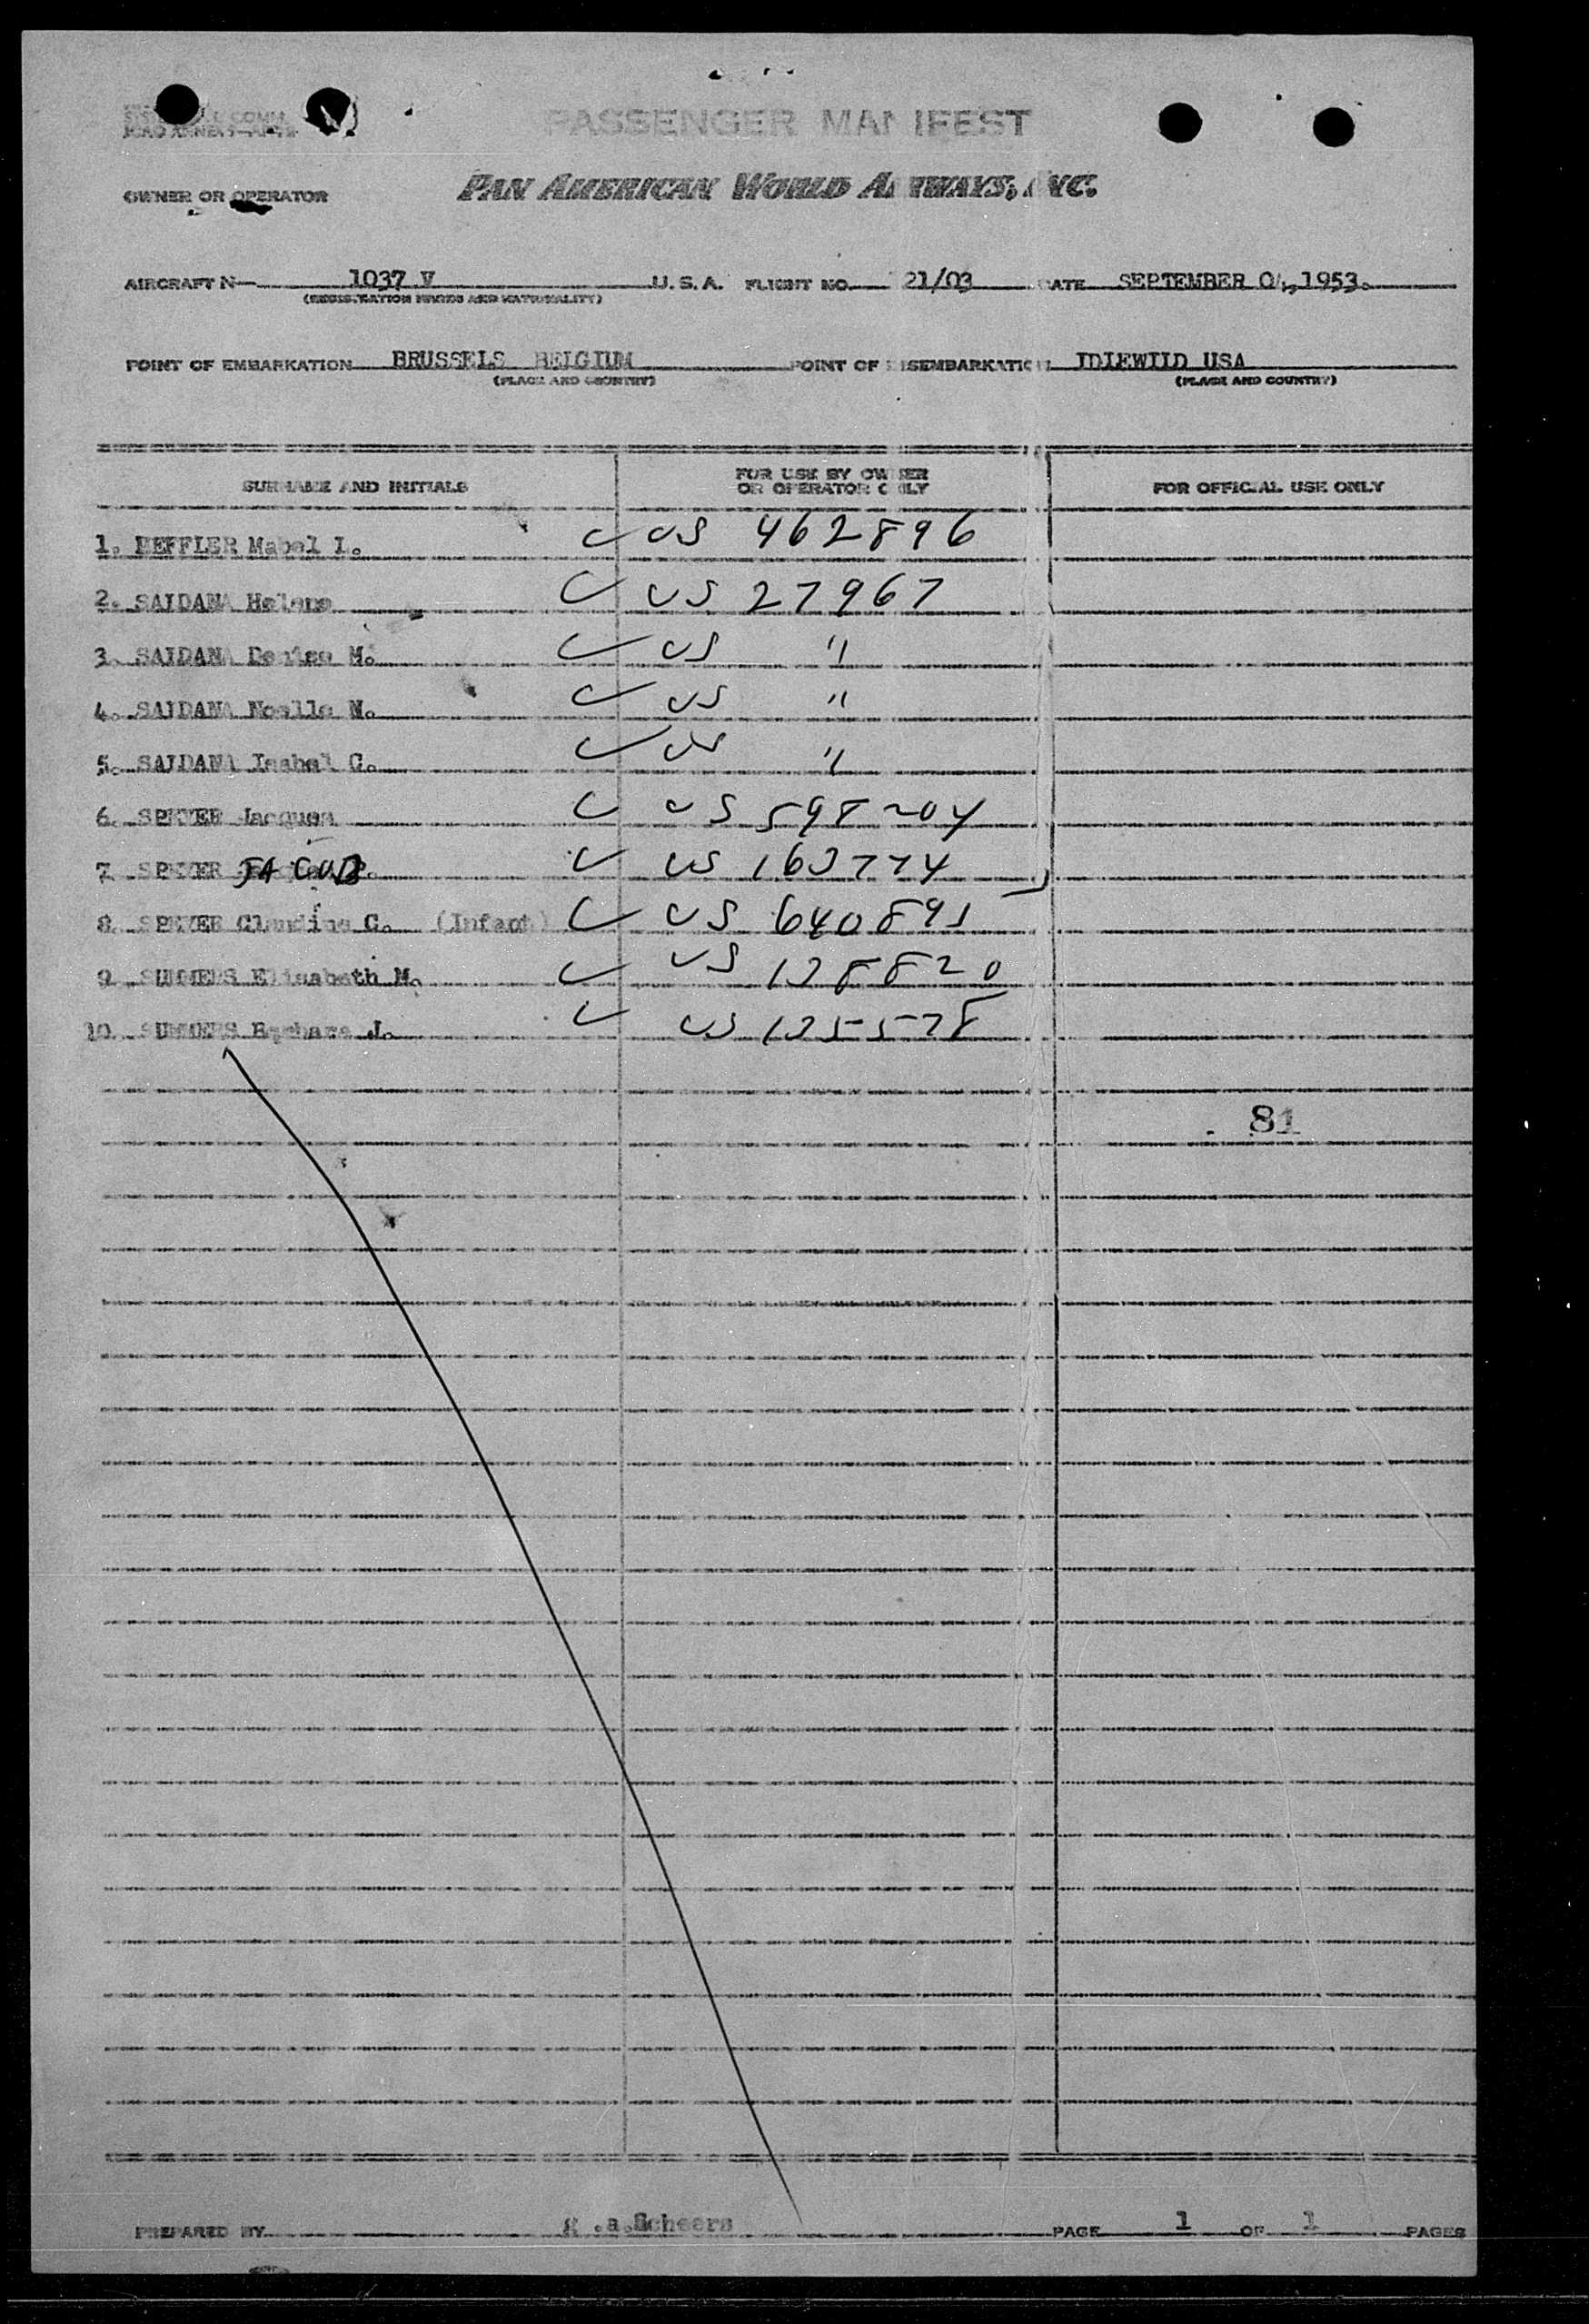 PASSENGER MANIFEST
OWNER OR OPERATOR PAN AMERICAN WORLD AIRWAYS, INC.
AIRCRAFT N 1037 V U.S.A. FLIGHT NO. 21/03 DATE SEPTEMBER 04, 1953.
(REGISTRATION MARKS AND NATIONALITY)
POINT OF EMBARKATION BRUSSELS BELGIUM POINT OF DISEMBARKATION IDLEWILD USA
(PLACE AND COUNTRY) (PLACE AND COUNTRY)
SURNAME AND INITIALS FOR USE BY OWNER OR OPERATOR ONLY FOR OFFICIAL USE ONLY
1. HEFFLER Mabel I. US 462896
2. SAIDANA Helene US 27967
3. SAIDANA Denise M. US "
4. SAIDANA Noelle N. US "
5. SAIDANA Isabel C. US "
6. SPEYER Jacques US 598204
7. SPEYER JACOB US 163774
8. SPEYER Claudine C. (Infant) US 640891
9. SUMMERS Elisabeth M. US 128820
10. SUMMERS Barbara J. US 125528
81
PREPARED BY .a.Scheers PAGE 1 OF 1 PAGES